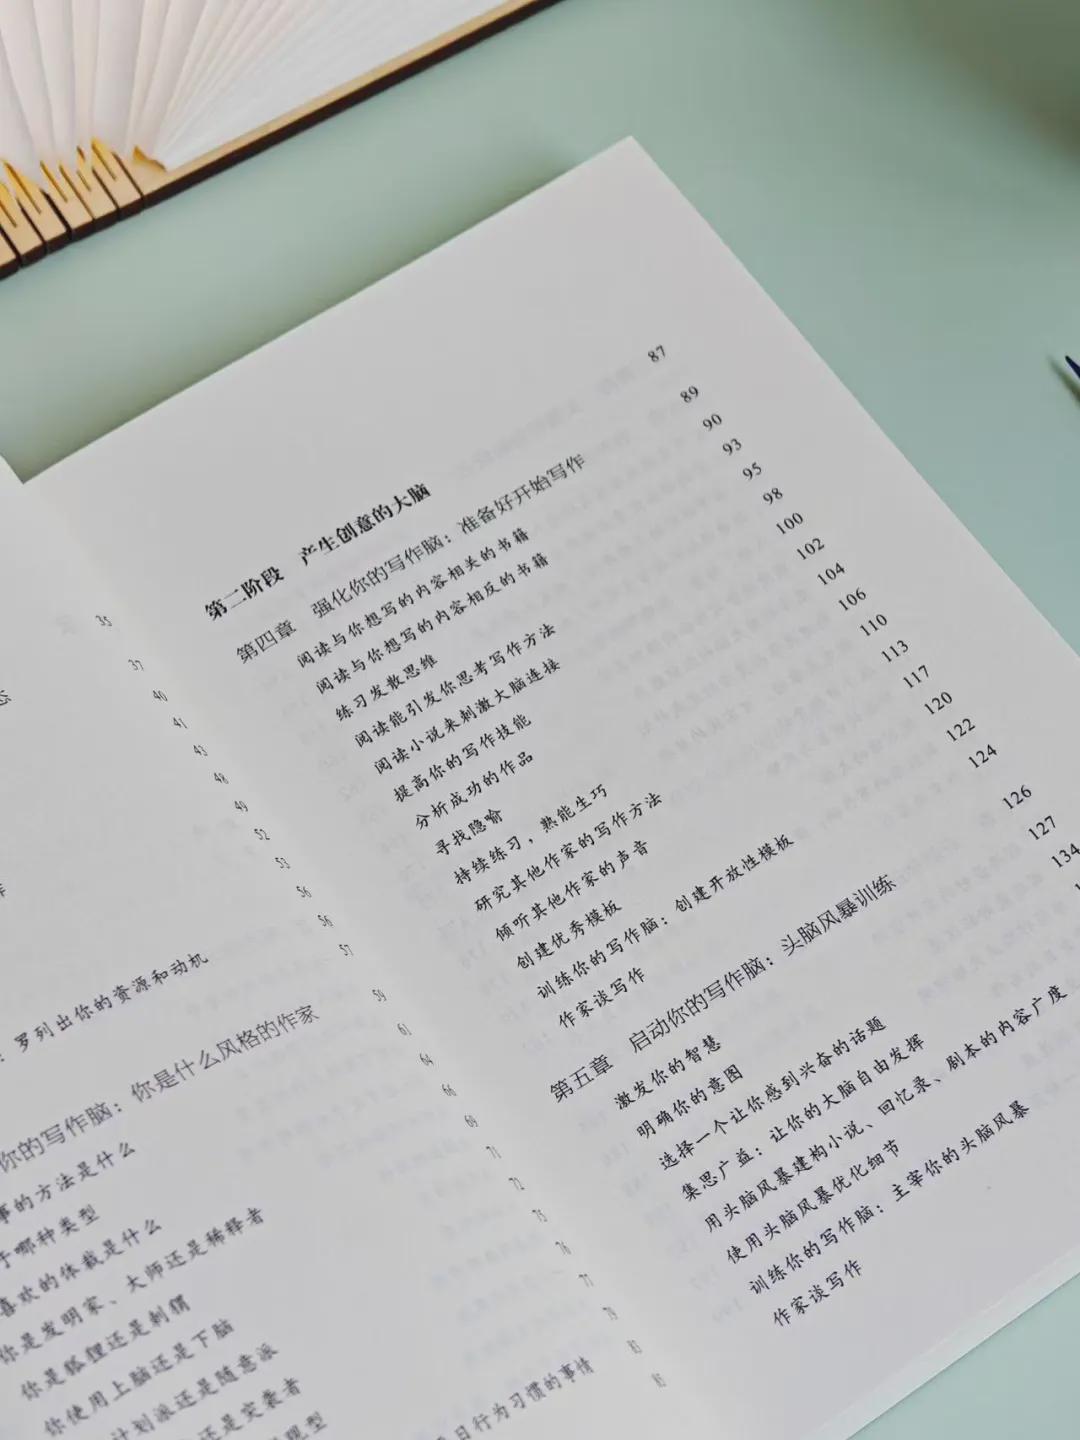 35
37
40
41
43
48
49
52
53
56
56
57
59
61
64
66
69
71
72
75
76
77
79
83
85
：罗列出你的资源和动机
你的写作脑：你是什么风格的作家
事的方法是什么
于哪种类型
喜欢的体裁是什么
你是发明家、大师还是稀释者
你是狐狸还是刺猬
你使用上脑还是下脑
计划派还是随意派
还是突袭者
理型
日行为习惯的事情
第二阶段 产生创意的大脑 87
第四章 强化你的写作脑：准备好开始写作 89
阅读与你想写的内容相关的书籍 90
阅读与你想写的内容相反的书籍 93
练习发散思维 95
阅读能引发你思考写作方法 98
阅读小说来刺激大脑连接 100
提高你的写作技能 102
分析成功的作品 104
寻找隐喻 106
持续练习，熟能生巧 110
研究其他作家的写作方法 113
倾听其他作家的声音 117
创建优秀模板 120
训练你的写作脑：创建开放性模板 122
作家谈写作 124
第五章 启动你的写作脑：头脑风暴训练 126
激发你的智慧 127
明确你的意图 134
选择一个让你感到兴奋的话题
集思广益：让你的大脑自由发挥
用头脑风暴建构小说、回忆录、剧本的内容广度
使用头脑风暴优化细节
训练你的写作脑：主宰你的头脑风暴
作家谈写作